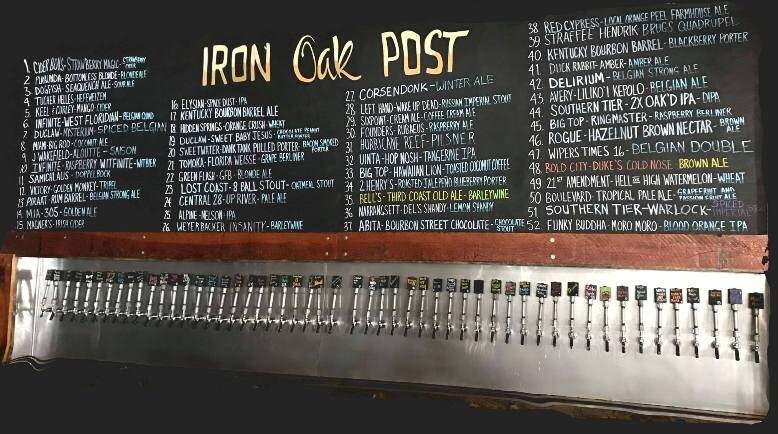 IRON Oak POST
1 CIDER BOYS - STRAWBERRY MAGIC - STRAWBERRY CIDER
2 BOTTOMLESS BLONDE - BLONDE ALE
3 DOGFISH - SEAQUENCH ALE - SOUR ALE
4 TUCHER HELLES HEFEWEIZEN
5 KEEL & CURLEY - MANGO - CIDER
6 INFINITE - WEST FLORIDIAN - BELGIAN QUAD
7 DUCLAW - MYSTERIUM - SPICED BELGIAN
8 MAM - BIG ROD - COCONUT ALE
9 J WAKEFIELD - ALOUTTE - SAISON
10 INFINITE - RASPBERRY WITFINITE - WITBIER
11 SAMICHLAUS - DOPPLEBOCK
12 VICTORY - GOLDEN MONKEY - TRIPEL
13 PIRAAT - RUM BARREL - BELGIAN STRONG ALE
14 MIA - 305 - GOLDEN ALE
15 MAGNERS - IRISH CIDER
16 ELYSIAN - SPACE DUST - IPA
17 KENTUCKY BOURBON BARREL ALE
18 HIDDEN SPRINGS - ORANGE CRUSH - WHEAT
19 DUCLAW - SWEET BABY JESUS - CHOCOLATE PEANUT BUTTER PORTER
20 SWEETWATER - DANK TANK PULLED PORTER - BACON SMOKED PORTER
21 TOMOKA - FLORIDA WEISSE - GRAPE BERLINER
22 GREEN FLASH - GFB - BLONDE ALE
23 LOST COAST - 8 BALL STOUT - OATMEAL STOUT
24 CENTRAL 28 - UP RIVER - PALE ALE
25 ALPINE - NELSON - IPA
26 WEYERBACKER INSANITY - BARLEYWINE
27 CORSENDONK - WINTER ALE
28 LEFT HAND - WAKE UP DEAD - RUSSIAN IMPERIAL STOUT
29 SIXPOINT - CREAM ALE - COFFEE CREAM ALE
30 FOUNDERS - RUBAEUS - RASPBERRY ALE
31 HURRICANE REEF - PILSNER
32 UINTA - HOP NOSH - TANGERINE IPA
33 BIG TOP - HAWAIIAN LION - TOASTED COCONUT COFFEE
34 2 HENRY'S - ROASTED JALAPENO BLUEBERRY PORTER
35 BELL'S - THIRD COAST OLD ALE - BARLEYWINE
36 NARRANGSETT - DEL'S SHANDY - LEMON SHANDY
37 ABITA - BOURBON STREET CHOCOLATE - CHOCOLATE STOUT
38 RED CYPRESS - LOCAL ORANGE PEEL FARMHOUSE ALE
39 STRAFFEE HENDRIK BRUGS QUADRUPEL
40 KENTUCKY BOURBON BARREL - BLACKBERRY PORTER
41 DUCK RABBIT - AMBER - AMBER ALE
42 DELIRIUM - BELGIAN STRONG ALE
43 AVERY - LILIKO'I KEPOLO - BELGIAN ALE
44 SOUTHERN TIER - 2X OAK'D IPA - DIPA
45 BIG TOP - RINGMASTER - RASPBERRY BERLINER
46 ROGUE - HAZELNUT BROWN NECTAR - BROWN ALE
47 WIPERS TIMES 16 - BELGIAN DOUBLE
48 BOLD CITY - DUKE'S COLD NOSE - BROWN ALE
49 21ST AMENDMENT - HELL OR HIGH WATERMELON - WHEAT
50 BOULEVARD TROPICAL PALE ALE - GRAPEFRUIT AND PASSION FRUIT ALE
51 SOUTHERN TIER - WARLOCK - SPICED IMPERIAL
52 FUNKY BUDDHA - MORO MORO - BLOOD ORANGE IPA